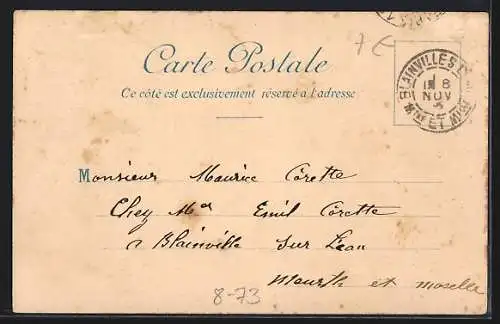 7€
Carte Postale
Ce côté est exclusivement réservé à l'adresse
BLAINVILLE-S-L'
8
NOV
MTHE ET MOSE
Monsieur Maurice Corette
Chez Mr Emil Corette
a Blainville Sur Leau
Meurth et moselle
8-73